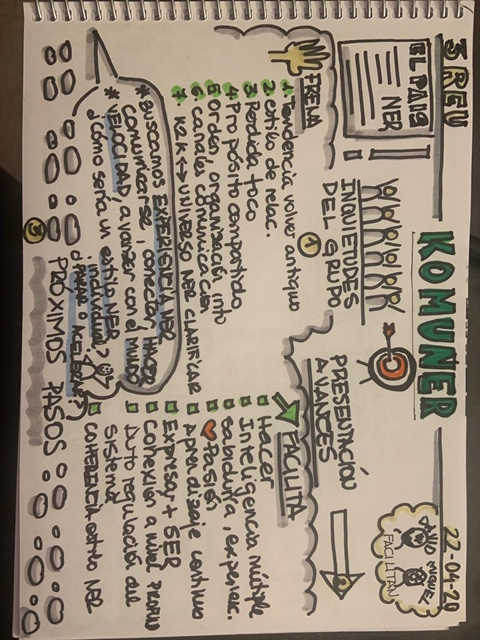 3 REU
KOMUNER
22-04-20
EL PAIS
NER
INQUIETUDES
DEL GRUPO
1
PRESENTACIÓN
AVANCES
DAVID MIGUEL
FACILITAN
FRENA
1. Tendencia volver antiguo
2. estilo de relac.
3 Perdida foco
4 Propósito compartido
5 Orden, organización, info
6 canales comunicación
7. K2K ↔ UNIVERSO NER CLARIFICAR
* BUSCAMOS EXPERIENCIA NER
COMUNICARSE, CONECTAR, HACER
* VELOCIDAD, avanzar con el MUNDO
¿Cómo sería un estilo NER
FACILITA
Hacer
Inteligencia múltiple
Sabiduría, experienc.
Pasión
Aprendizaje continuo
Expresar + SER
Conexión a nivel PROFUN
Auto regulación del
Sistema
COHERENCIA estado NER
3
PRÓXIMOS PASOS